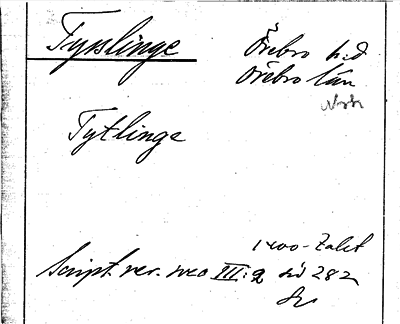 Tysslinge Örebro hd
Örebro län
Tytlinge
1400-talet
Script. rer. sveo III:2 sid 282